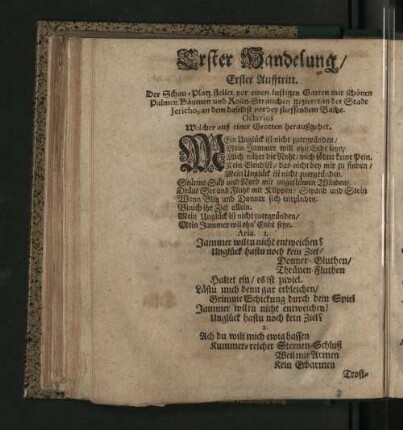 Erster Handelung/
Erster Aufftritt.
Der Schau-Platz stellet vor einen lustigen Garten mit schönen
Palmen Bäumen und Rosen-Sträuchen gezieret an der Stadt
Jericho, an dem daselbst vorbey fliessendem Bache.
Octavius
Welcher auß einer Grotten herausgehet.
MEin Unglück ist nicht zuergründen/
Mein Jammer will ohn Ende seyn/
Mich nähet die Nohte/ mich tödtet keine Pein.
Kein Elend ist/ das nicht bey mir zu finden/
Mein Unglück ist nicht zuergründen.
Stürmt Süd und Nord mit ungestümen Winden/
Dräut See und Fluht mit Klippen/ Strand und Stein
Wenn Blitz und Donner sich entzünden.
Bin ich ihr Ziel allein.
Mein Unglück ist nicht zuergründen/
Mein Jammer wil ohn' Ende seyn.
Aria. 1.
Jammer wiltu nicht entweichen?
Unglück hastu noch kein Ziel/
Donner-Gluthen/
Thränen-Fluthen
Haltet ein/ es ist zuviel.
Lästu mich denn gar erbleichen/
Grimme Schickung durch dein Spiel
Jammer wiltu nicht entweichen/
Unglück hastu noch kein Ziel?
2.
Ach du wilt mich ewig hassen
Kummer-reicher Sternen-Schluß
Weil mit Armen
Kein Erbarmen
Trost-